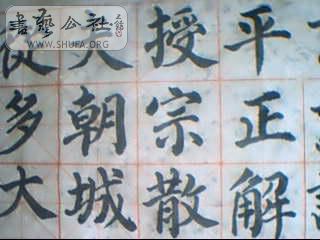 書藝公社
WWW.SHUFA.ORG
平正解
授宗散
朝城
多大